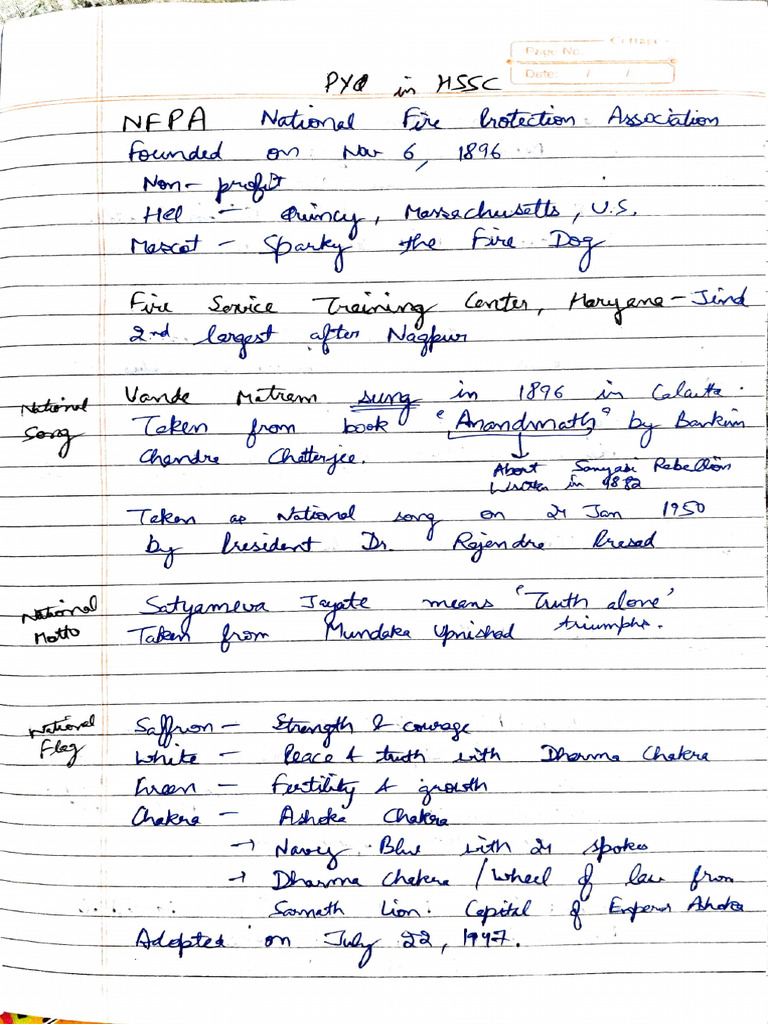 Page No.
Date: / /
PYQ in HSSC
NFPA National Fire Protection Association
Founded on Nov 6, 1896
Non-profit
Quincy, Massachusetts, U.S.
Mascot - Sparky the Fire Dog
Fire Service Training Center, Haryana - Jind
2nd largest after Nagpur
National Song
Vande Matram sung in 1896 in Calcutta.
Taken from book "Anandmath" by Bankim
Chandra Chatterjee.
About Sanyasi Rebellion
Written in
Taken as National song on 24 Jan 1950
by President Dr. Rajendra Prasad
National Motto
Satyameva Jayate means 'Truth alone'
Taken from Mundaka Upnishad triumphs.
National Flag
Saffron - Strength & courage
White - Peace & truth with Dharma Chakra
Green - Fertility & growth
Chakra - Ashoka Chakra
→ Navy Blue with 24 spokes
→ Dharma Chakra / Wheel of law from
Sarnath Lion Capital of Emperor Ashoka
Adopted on July 22, 1947.